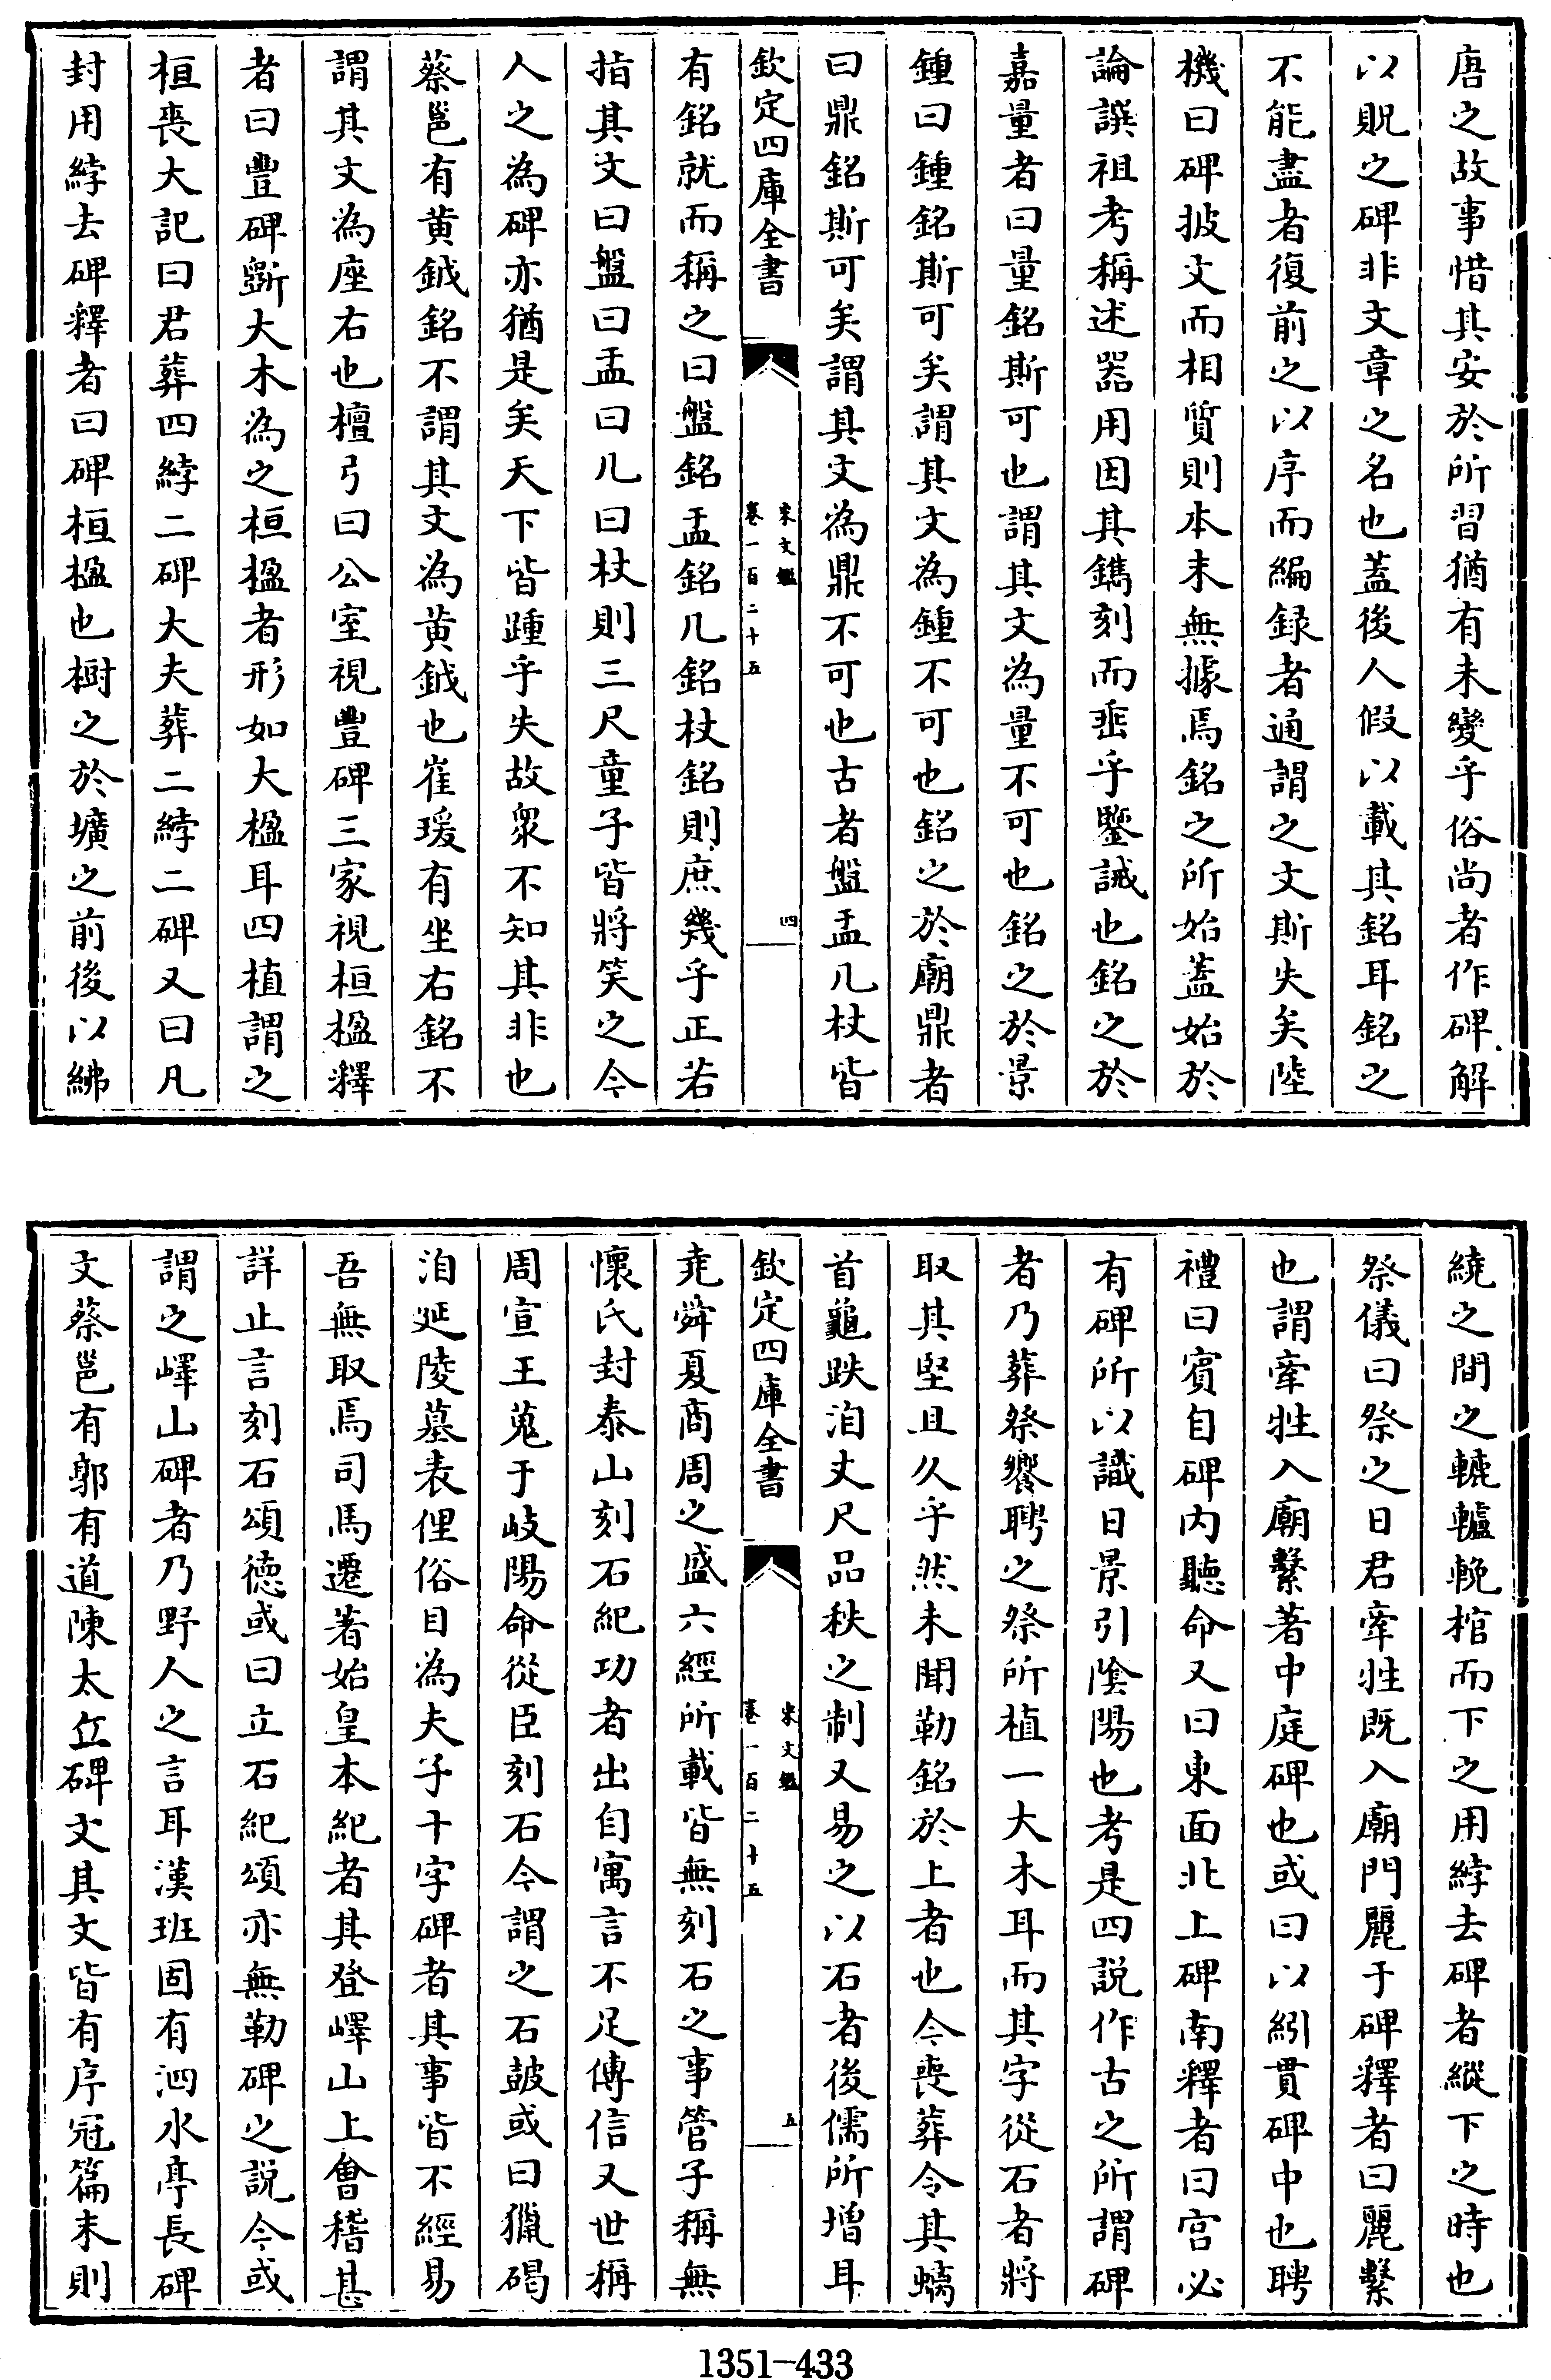 唐之故事惜其安於所習猶有未變乎俗尚者作碑解
以貺之碑非文章之名也蓋後人假以載其銘耳銘之
不能盡者復前之以序而編録者通謂之文斯失矣陸
機曰碑披文而相質則本末無據焉銘之所始蓋始於
論譔祖考稱述器用因其鐫刻而垂乎鑒誡也銘之於
嘉量者曰量銘斯可也謂其文為量不可也銘之於景
鍾曰鍾銘斯可矣謂其文為鍾不可也銘之於廟鼎者
曰鼎銘斯可矣謂其文為鼎不可也古者盤盂几杖皆
欽定四庫全書
宋文鑑
卷一百二十五
四
有銘就而稱之曰盤銘盂銘几銘杖銘則庶幾乎正若
指其文曰盤曰盂曰几曰杖則三尺童子皆將笑之今
人之為碑亦猶是矣天下皆踵乎失故衆不知其非也
蔡邕有黄鉞銘不謂其文為黄鉞也崔瑗有坐右銘不
謂其文為座右也檀弓曰公室視豐碑三家視桓楹釋
者曰豐碑斲大木為之桓楹者形如大楹耳四植謂之
桓喪大記曰君葬四綍二碑大夫葬二綍二碑又曰凡
封用綍去碑釋者曰碑桓楹也樹之於壙之前後以紼
繞之間之轆轤輓棺而下之用綍去碑者縱下之時也
祭儀曰祭之日君牽牲既入廟門麗于碑釋者曰麗繫
也謂牽牲入廟繫著中庭碑也或曰以紖貫碑中也聘
禮曰賓自碑内聽命又曰東面北上碑南釋者曰宫必
有碑所以識日景引陰陽也考是四説作古之所謂碑
者乃葬祭饗聘之祭所植一大木耳而其字從石者將
取其堅且久乎然未聞勒銘於上者也今喪葬令其螭
首龜趺洎丈尺品秩之制又易之以石者後儒所增耳
欽定四庫全書
宋文鑑
卷一百二十五
五
堯舜夏商周之盛六經所載皆無刻石之事管子稱無
懷氏封泰山刻石紀功者出自寓言不足傳信又世稱
周宣王蒐于岐陽命從臣刻石今謂之石鼓或曰獵碣
洎延陵墓表俚俗目為夫子十字碑者其事皆不經易
吾無取焉司馬遷著始皇本紀者其登嶧山上會稽甚
詳止言刻石頌德或曰立石紀頌亦無勒碑之説今或
謂之嶧山碑者乃野人之言耳漢班固有泗水亭長碑
文蔡邕有郭有道陳太丘碑文其文皆有序冠篇末則
1351-433